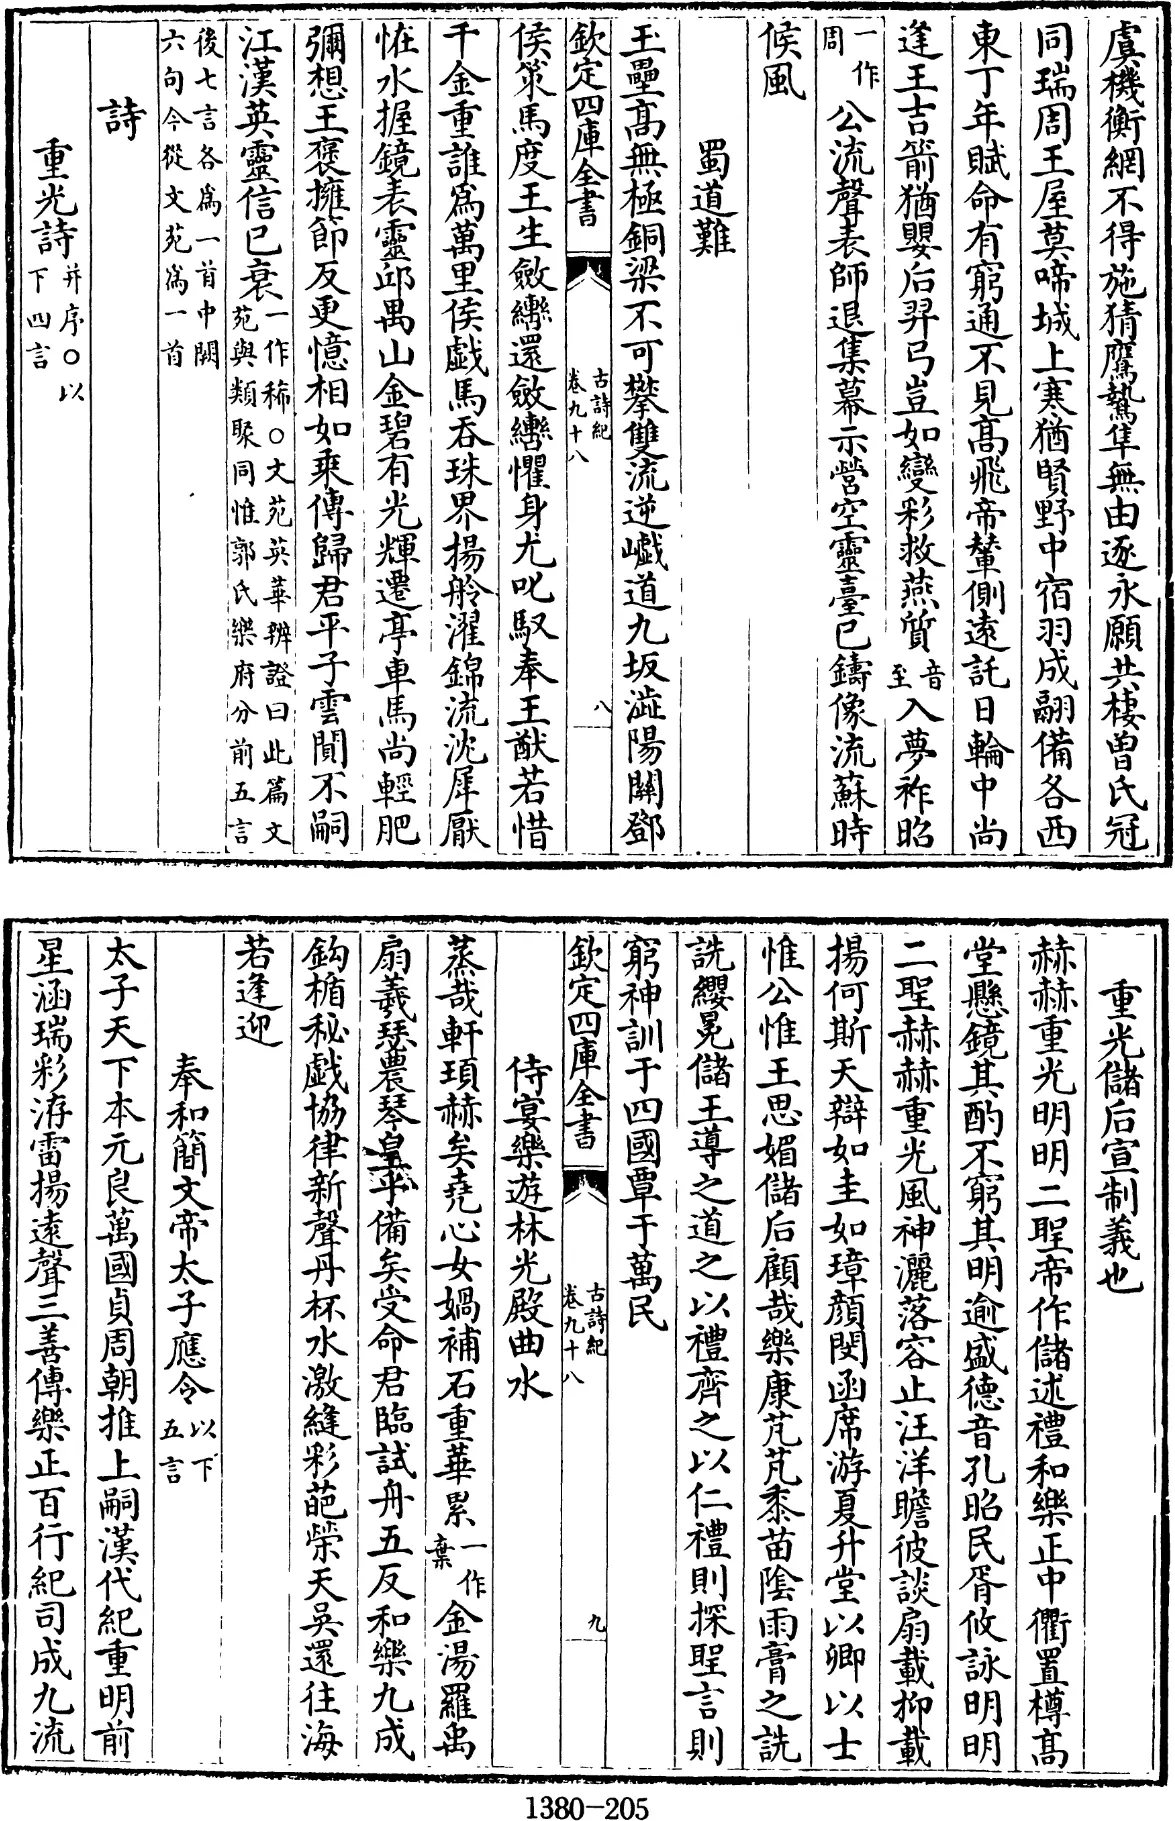 虞機衡網不得施猜鷹鷙隼無由逐永願共棲曽氏冠
同瑞周王屋莫啼城上寒猶賢野中宿羽成翮備各西
東丁年賦命有窮通不見髙飛帝輦側逺託日輪中尚
逢王吉箭猶嬰后羿弓豈如變彩救燕質音至入夢祚昭
一作周公流聲表師退集幕示營空靈臺已鑄像流蘇時
候風
蜀道難
玉壘髙無極銅梁不可攀雙流逆巇道九坂澁陽關鄧
欽定四庫全書
古詩紀
卷九十八
八
侯策馬度王生斂轡還斂轡懼身尤叱馭奉王猷若惜
千金重誰爲萬里侯戯馬吞珠界揚舲濯錦流沈犀厭
怪水握鏡表靈邱禺山金碧有光輝遷亭車馬尚輕肥
彌想王褒擁節反更憶相如乘傳歸君平子雲閴不嗣
江漢英靈信已衰一作稀○文苑英華辨證曰此篇文
苑與類聚同惟郭氏樂府分前五言
後七言各爲一首中闕
六句今從文苑爲一首
詩
重光詩并序○以
下四言
重光儲后宣制義也
赫赫重光明明二聖帝作儲述禮和樂正中衢置樽髙
堂懸鏡其酌不窮其明逾盛德音孔昭民胥攸詠明明
二聖赫赫重光風神灑落容止汪洋瞻彼談扇載抑載
揚何斯天辯如圭如璋顔閔函席游夏升堂以卿以士
惟公惟王思媚儲后顧哉樂康芃芃黍苗隂雨膏之詵
詵纓冕儲王導之道之以禮齊之以仁禮則探聖言則
窮神訓于四國覃于萬民
欽定四庫全書
古詩紀
卷九十八
九
侍宴樂遊林光殿曲水
蒸哉軒頊赫矣堯心女媧補石重華累一作棄金湯羅禹
扇羲瑟農琴皇平備矣受命君臨試舟五反和樂九成
鈎楯秘戯協律新聲丹杯水激縫彩葩榮天吳還往海
若逢迎
奉和簡文帝太子應令以下
五言
太子天下本元良萬國貞周朝推上嗣漢代紀重明前
星涵瑞彩洊雷揚逺聲三善傳樂正百行紀司成九流
1380-205